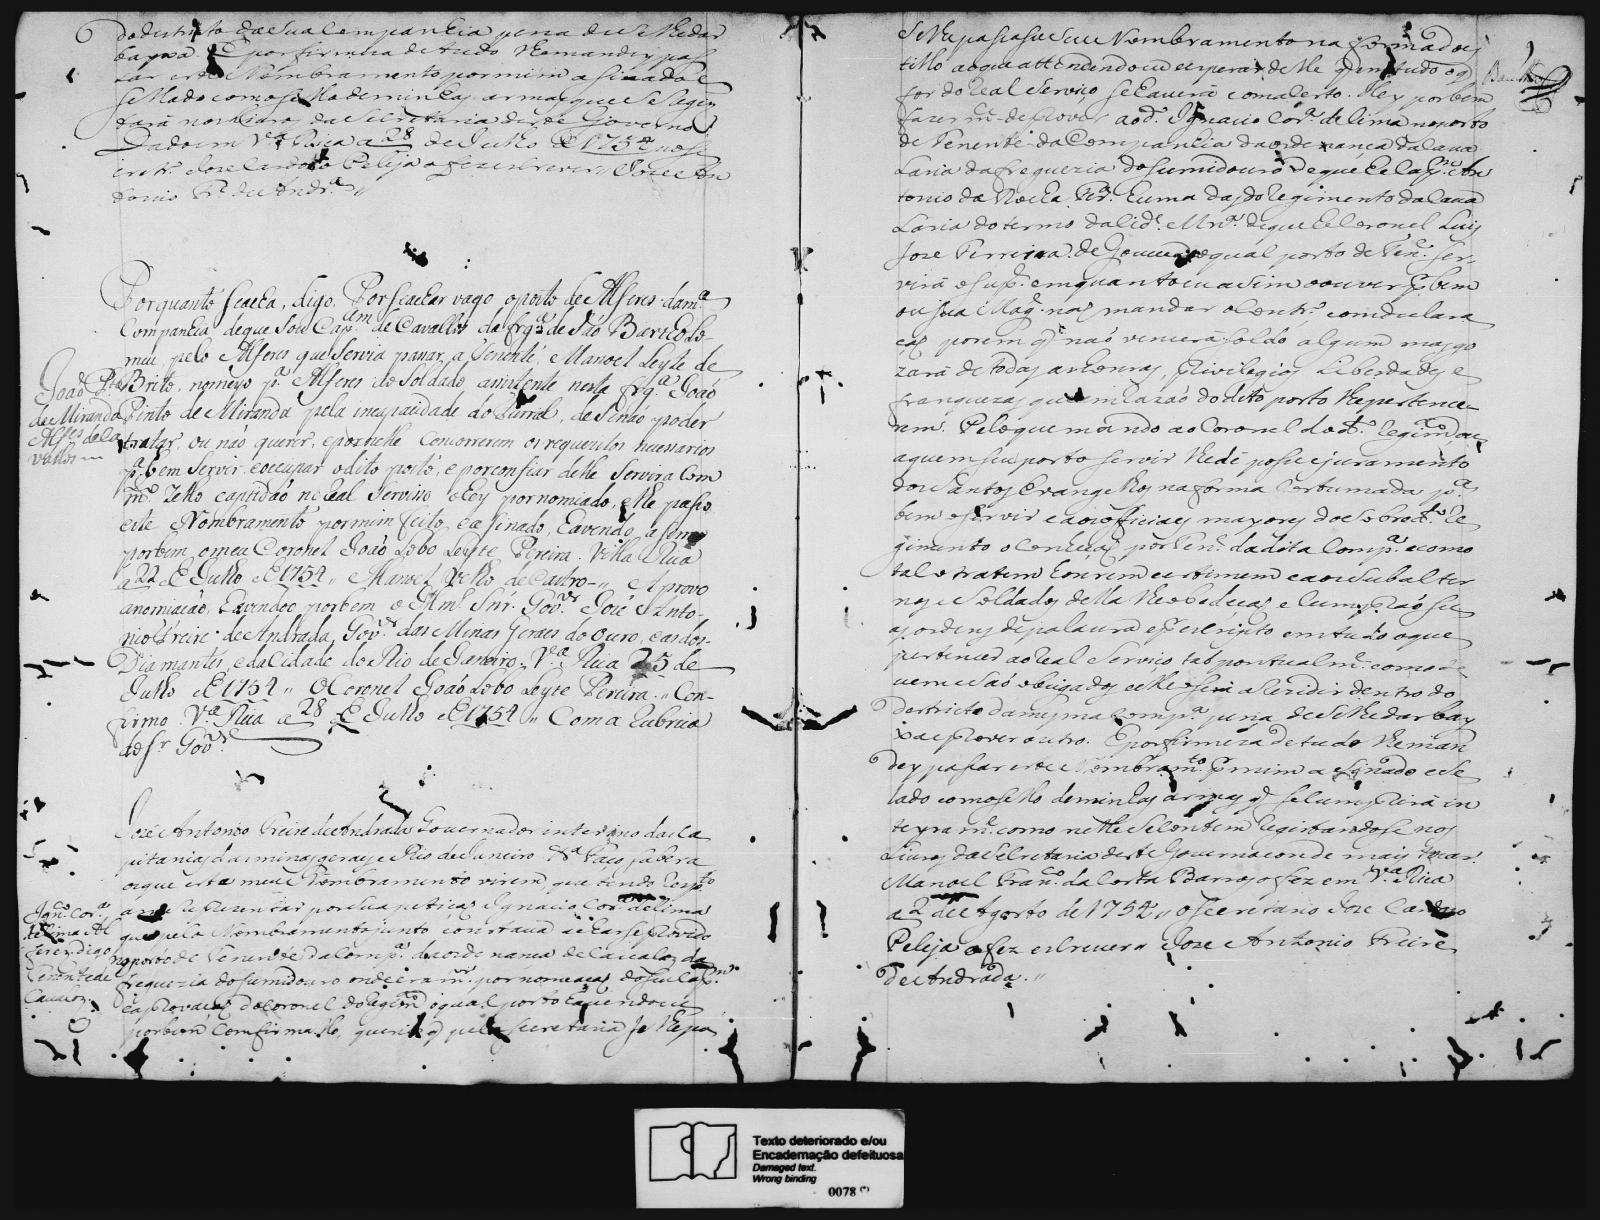 do destricto da sua Companhia pena de se lhe dar
bayxa E por firmeza de tudo lhe mandey pas
sar este Nombramento por mim asinado e
sellado com o sello de minhas armas que se Regis
tará nos livros da Secretaria deste Governo
Dado em V.ª Rica a 28 de Julho de 1754 o Se
cret.º Joze Cardozo Peleja o fez escrever // Joze An
tonio Fr.e de Andr.ª //
Porquanto se acha, digo, Por se achar vago o posto de Alferes da m.ª
Companhia de que sou Cap.am de Cavallos da frg.ª de São Bartholo-
meu pelo Alferes que servia passar a Tenente, e Manoel Leyte de
Brito, nomeyo p.ª Alferes ao Soldado, asistente nesta frg.ª João
Pinto de Miranda pela incapacidade do Furriel, de senão poder
tratar, ou não querer, e por nelle concorrerem os requezitos necessarios
p.ª bem servir, e occupar o dito posto, e por confiar delle servirá com
m.to zello e aptidão no Real Serviço o hey por nomiado, e lhe passo
este Nombramento por mim feito, e asinado, havendo, asim
por bem o meu Coronel João Lobo Leyte Pereira. Villa Rica
a 22 de Julho de 1754 // Manoel Velho de Castro // Aprovo
a nomiação, havendoo por bem o Illm.º Snr. Gov.or José Anto-
nio Freire de Andrada, Gov.or das Minas Geraes do Ouro, e as dos
Diamantes, e da Cidade do Rio de Janeiro, V.ª Rica 25 de
Julho de 1754 // O Coronel João Lobo Leyte Pereira // Con-
firmo V.ª Rica a 28 de Julho de 1754 // Com a Rubrica
do Sr. Gov.or
João P.to
de Miranda
Alferes de Ca
vallos
José Antonio Freire de Andrada Governador interino das Ca
pitanias das minas geraes e Rio de Janeiro &ª Faço saber a
os que esta meu Nombramento virem que tendo resp.to
a me reprezentar por sua petição Ignacio Cor.ª de lima
que pelo Nombramento junto constava achar se provido
no posto de Tenente da Comp.ª da ordenança de Cavalos da
freguezia do sumidouro
e aprovação do Coronel do Regim.to o qual posto havendo eu
por bem Comfirmarlho, queria q pela secretaria se lhe pa
Ign.co Cor.ª
de lima Al
feres, digo
Tenente de
Cavalos
se lhe passasse seu Nombramento na forma do es
tillo ao que attendendo eu e esperar delle q em tudo o q
for do Real Serviço se haverá com acerto. Hey por bem
fazer m.ce de prover ao d.º Ignacio Cor.ª de lima no posto
de Tenente da Companhia da ordenança da Cava
laria da freguezia do sumidouro de que he Cap.am An
tonio da Rocha Fr.ª huma das do Regimento da Cava
laria do termo da Cid.e Mrn.ª de que he Coronel Luis
Joze Ferreira de Gouvea o qual posto de Ten.e ser-
virá e sup. emquanto eu asim o ouver p.r bem
ou sua Mag.e não mandar o Contr.º, com declara
ção porem q não vencerá soldo algum mas go
zará de todas as honras, Privilegios Liberdades e
franquezas, que em razão do dito posto lhe pertence-
rem. Pelo que mando ao Coronel do d.to Regim.to a
aquem seu posto servir lhe dê posse e juramento
dos Santos Evangelhos na forma Costumada p.ª
bem servir e aos officiaes mayores do sobred.to Re
gimento o conheção por Ten.e da dita Comp.ª e como
tal o tratem honrem e estimem e aos subalter
nos e Soldados della lhe obedeção e cumprão su
as ordens de palavra e p.r escripto em tudo o que
pertencer ao Real Serviço tão pontualm.te como de
vem e são obrigados e elle será a Rezidir dentro do
destricto da mesma Comp.ª pena de se lhe dar bay
xa e prover outro. E por firmeza de tudo lhe man
dey passar este Nombram.to p.r mim asignado e se
lado com o sello de minhas armas q se cumprirá in
teyram.te como nelle se contem registandose nos
Livros da Secretaria deste Governo e onde mais tocar.
Manoel Fran.co da Costa Barros o fez em V.ª Rica
a 2 de Agosto de 1754 // o Secretario Joze Cardozo
Peleja o fez escrever // Joze Antonio Freire
de Andrada. //
Texto deteriorado e/ou
Encadernação defeituosa
Damaged text.
Wrong binding
0078 (*)